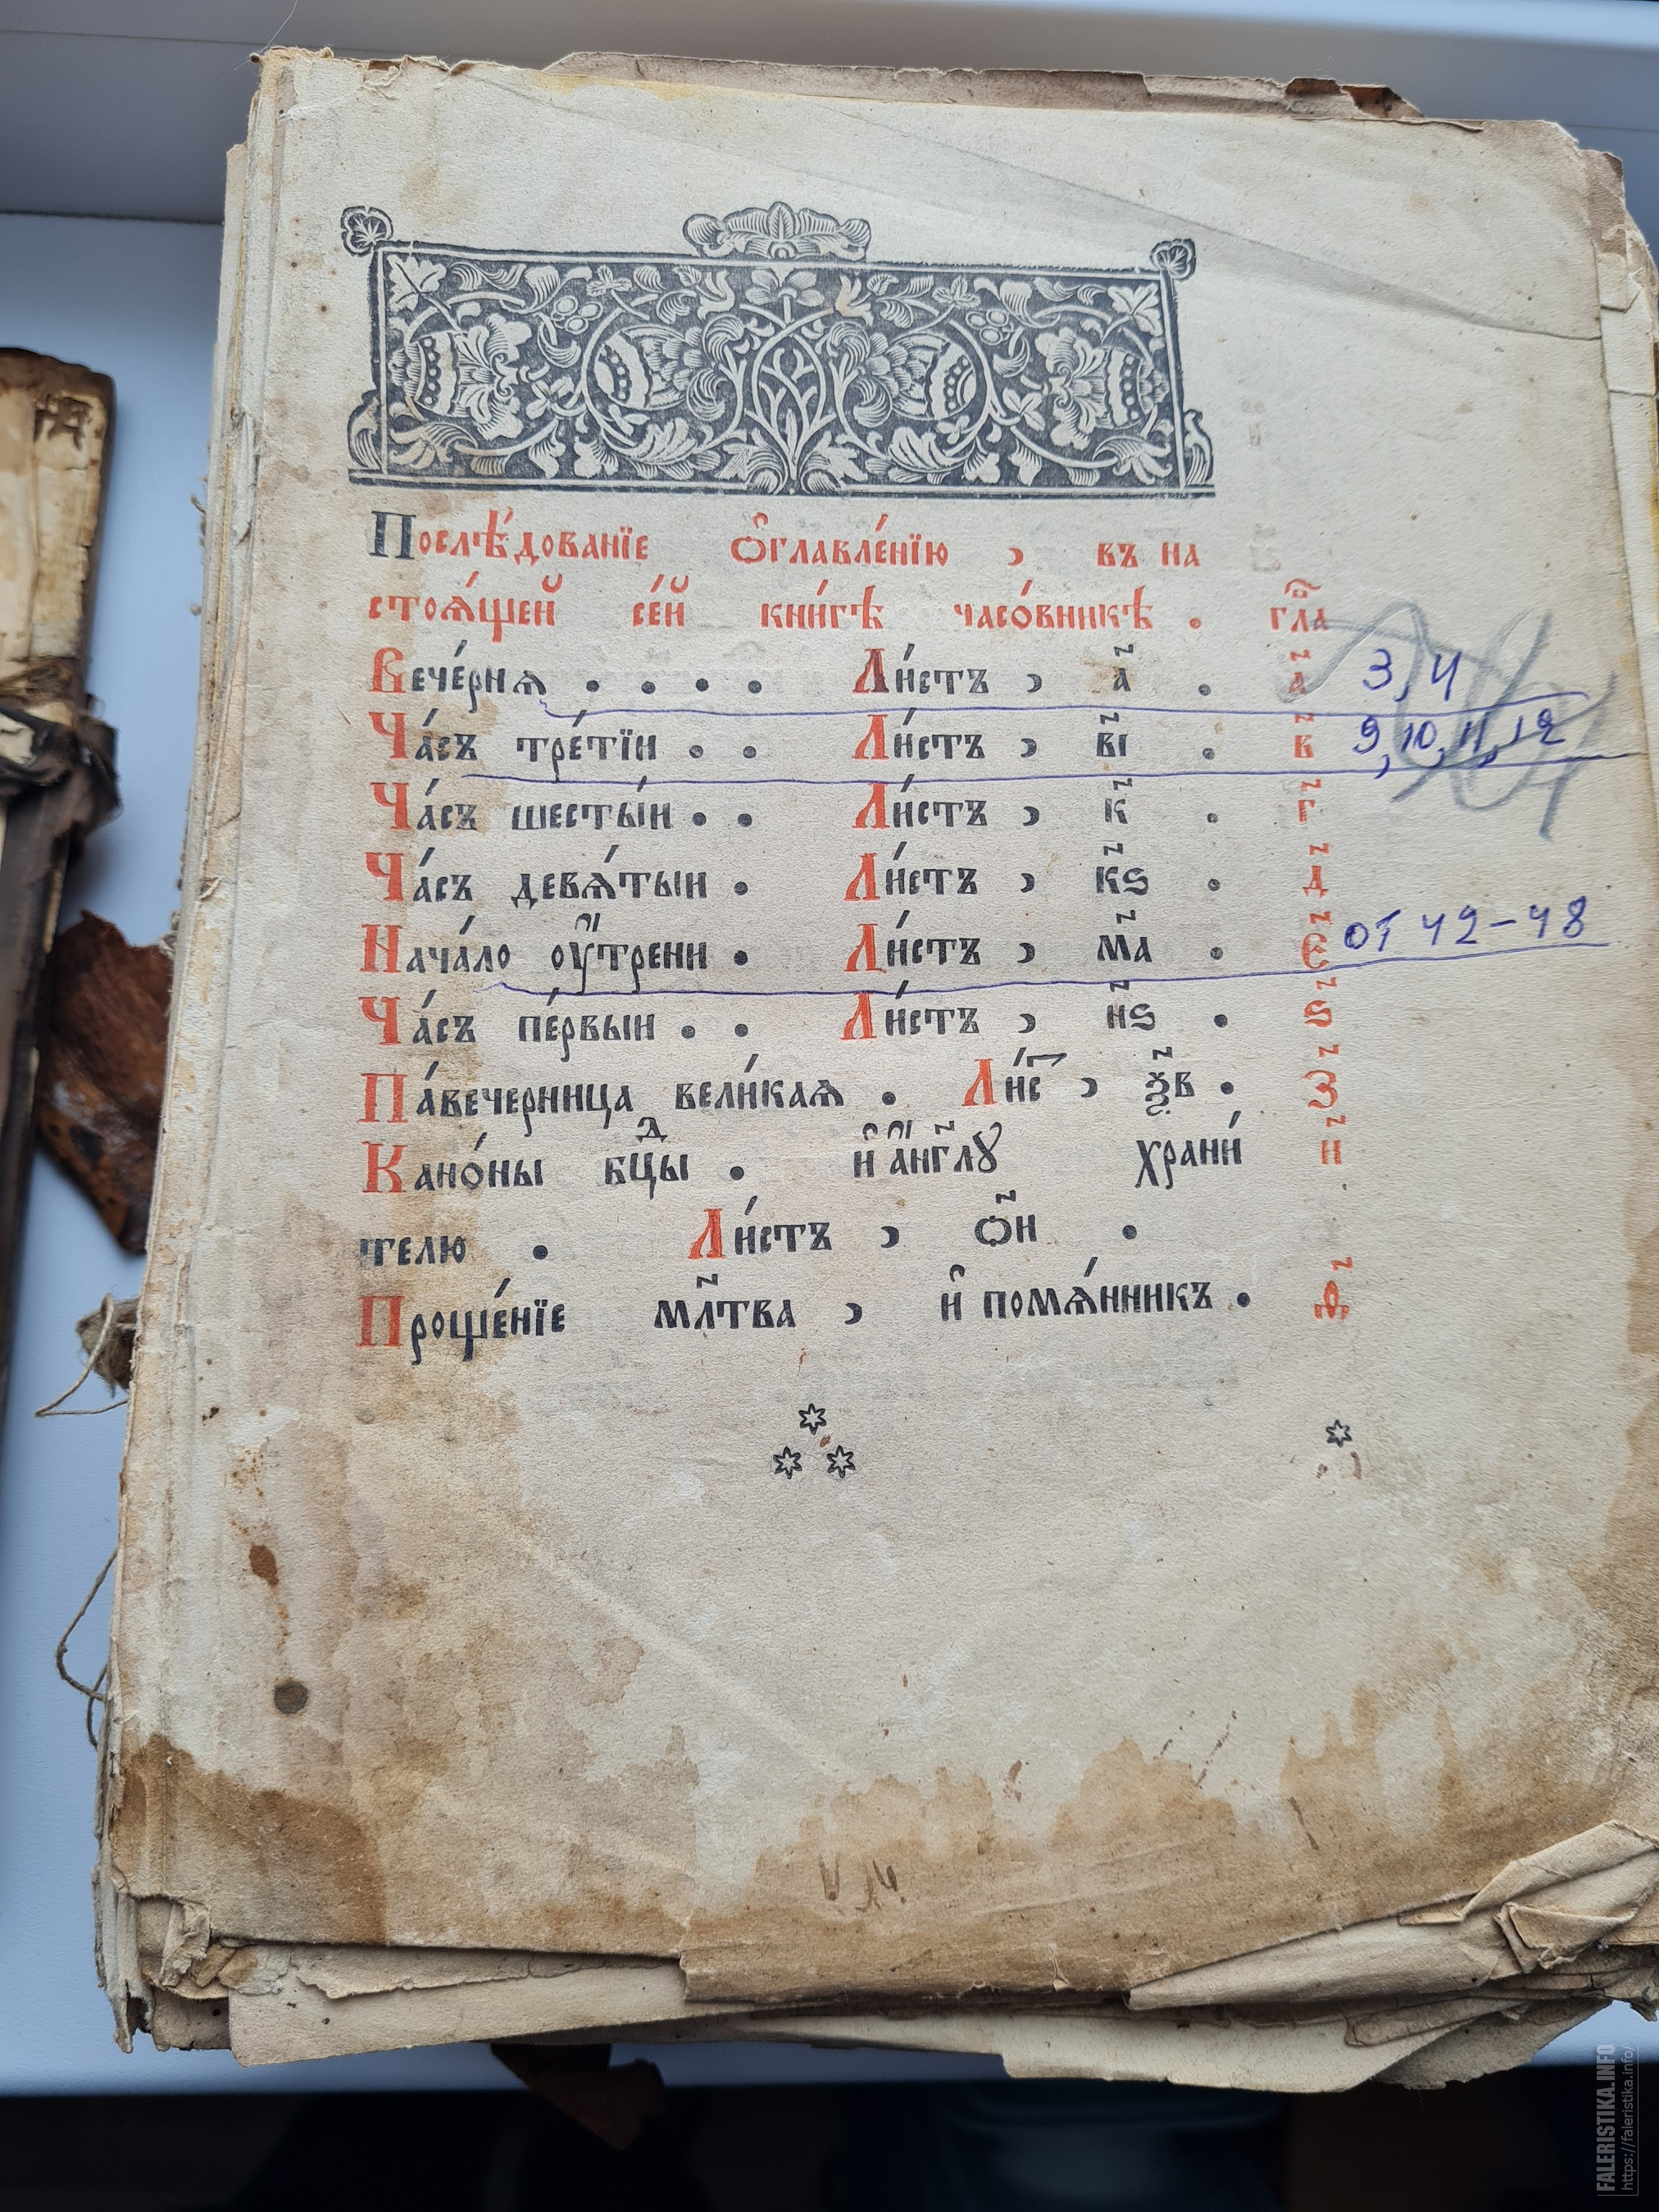 Послѣ́дованїе ѻ҆главле́нїю , въ на
стоѧ́щей се́й кни́гѣ часо́вникѣ . гл҃а
Вече́рнѧ . . . . Ли́стъ , а҃ . а҃ 3, 4
Ча́съ тре́тїи . . Ли́стъ , в҃і . в҃ 9, 10, 11, 12
Ча́съ шесты́и . . Ли́стъ , к҃ . г҃
Ча́съ девѧ́тыи . Ли́стъ , к҃ѕ . д҃
Нача́ло оу҆́трени . Ли́стъ , м҃а . є҃ от 42-48
Ча́съ пе́рвыи . . Ли́стъ , н҃ѕ . ѕ҃
Па́вечерница вели́каѧ . Ли́с , ѯ҃в . з҃
Кано́ны бцⷣы . и҆ а҆́нг҃лꙋ храни́ и҃
телю . Ли́стъ , ѻ҃и .
Проще́нїе мл҃тва , и҆ помѧ́нникъ . ѳ҃
FALERISTIKA.INFO
https://faleristika.info/